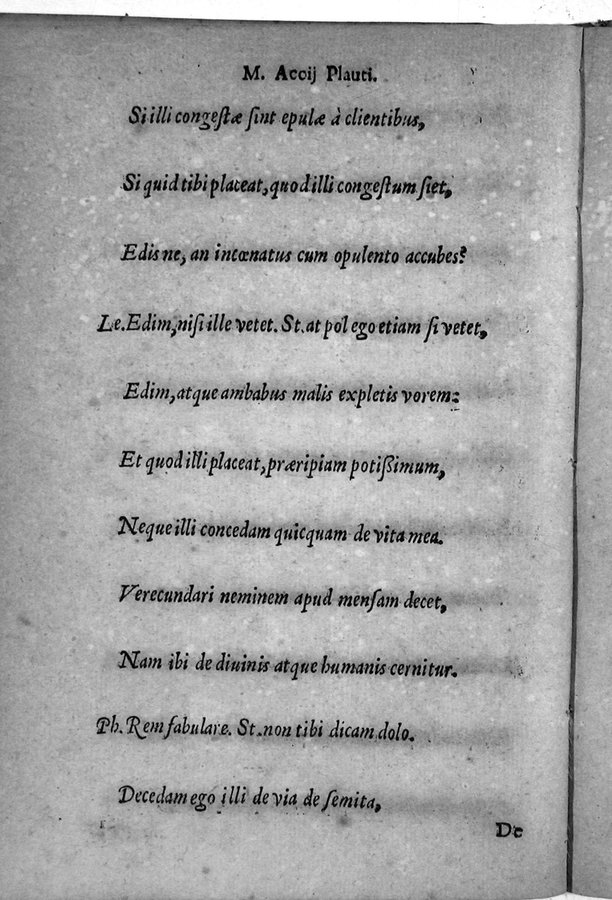 M. Accij Plauti.
Si illi congestæ sint epulæ à clientibus,
Si quid tibi placeat, quod illi congestum siet,
Edisne, an incœnatus cum opulento accubes?
Le. Edim, nisi ille vetet. St. at pol ego etiam si vetet,
Edim, atque ambabus malis expletis vorem:
Et quod illi placeat, præripiam potißimum,
Neque illi concedam quicquam de vita mea.
Verecundari neminem apud mensam decet,
Nam ibi de diuinis atque humanis cernitur.
Ph. Rem fabulare. St. non tibi dicam dolo.
Decedam ego illi de via de semita,
De